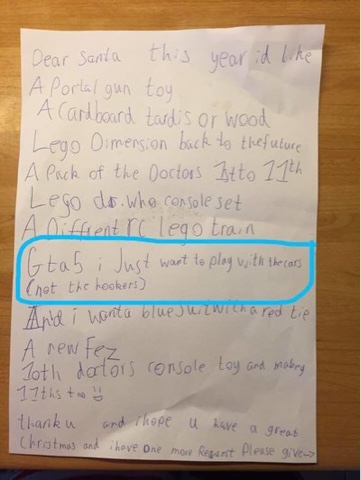 Dear Santa this year id like
A Portal gun toy
A Cardboard tardis or wood
Lego Dimension back to thefuture
A Pack of the Doctors 1st to 11th
Lego dr. who console set
A Diffrent rc lego train
Gta5 i Just want to play with the cars
(not the hookers)
And i want a blue suit with a red tie
A new Fez
10th doctors console toy and mabey
11ths too :)
thank u and i hope u have a great
Christmas and i have one more Request Please give→